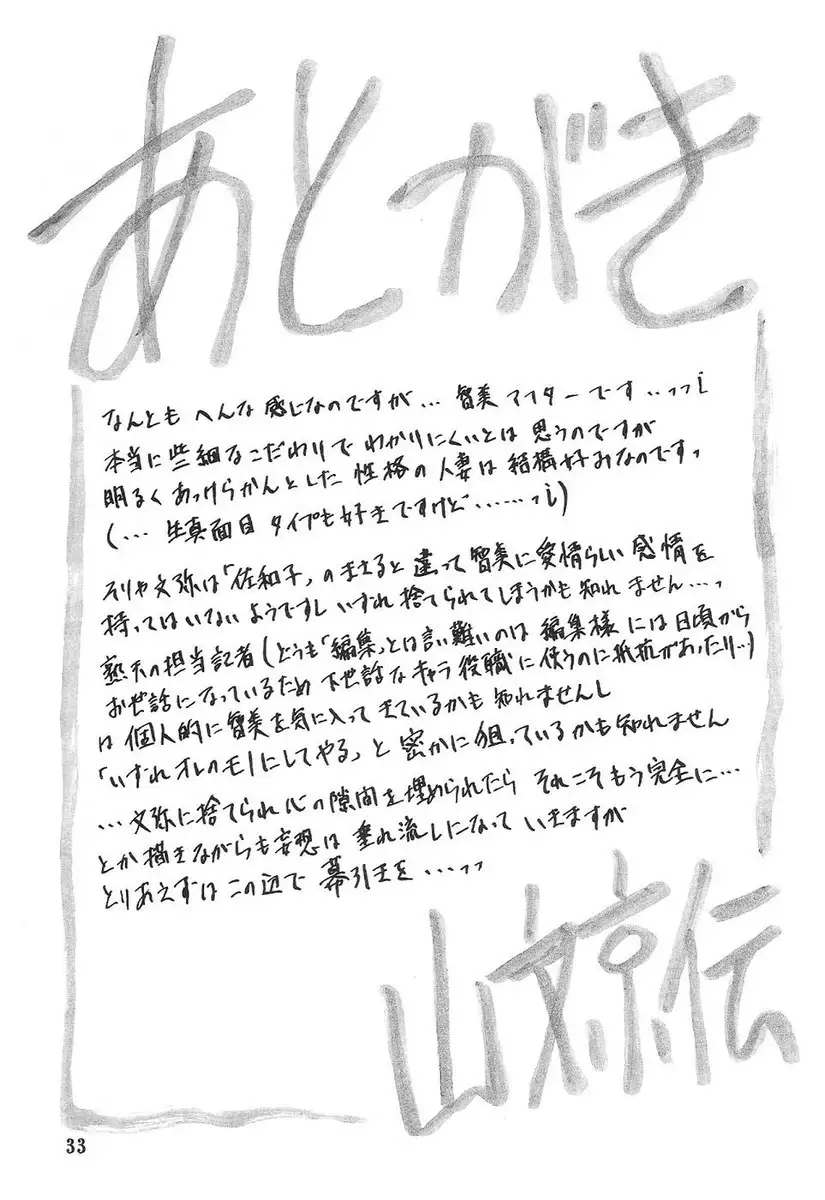 あとがき
なんとも へんな 感じなのですが… 智美アフターです…っっ¡
本当に些細なこだわりで わかりにくいとは 思うのですが
明るく あっけらかんとした 性格の 人妻は 結構好みなのですっ
(… 生真面目 タイプも好きですけど……っ¡)
そりゃ文弥は「佐和子」の まえると 違って 智美に愛情らしい 感情を
持ってはいないようですし いずれ 捨てられてしまうかも知れません…っ
熟天の担当記者(どうも「編集」とは言い難いのは 編集様 には 日頃から
お世話になっているため 下世話な キャラ 役職に 使うのに抵抗があったり…)
は 個人的に智美を気に入って きているかも 知れませんし
「いずれ オレのモノにしてやる」と 密かに 狙っているかも知れません
… 文弥に捨てられ心の 隙間を 埋められたら それこそもう完全に…
とか 描きながらも妄想は 垂れ流しになって いきますが
とりあえずは この辺で 幕引きを …っっ
山文京伝
33